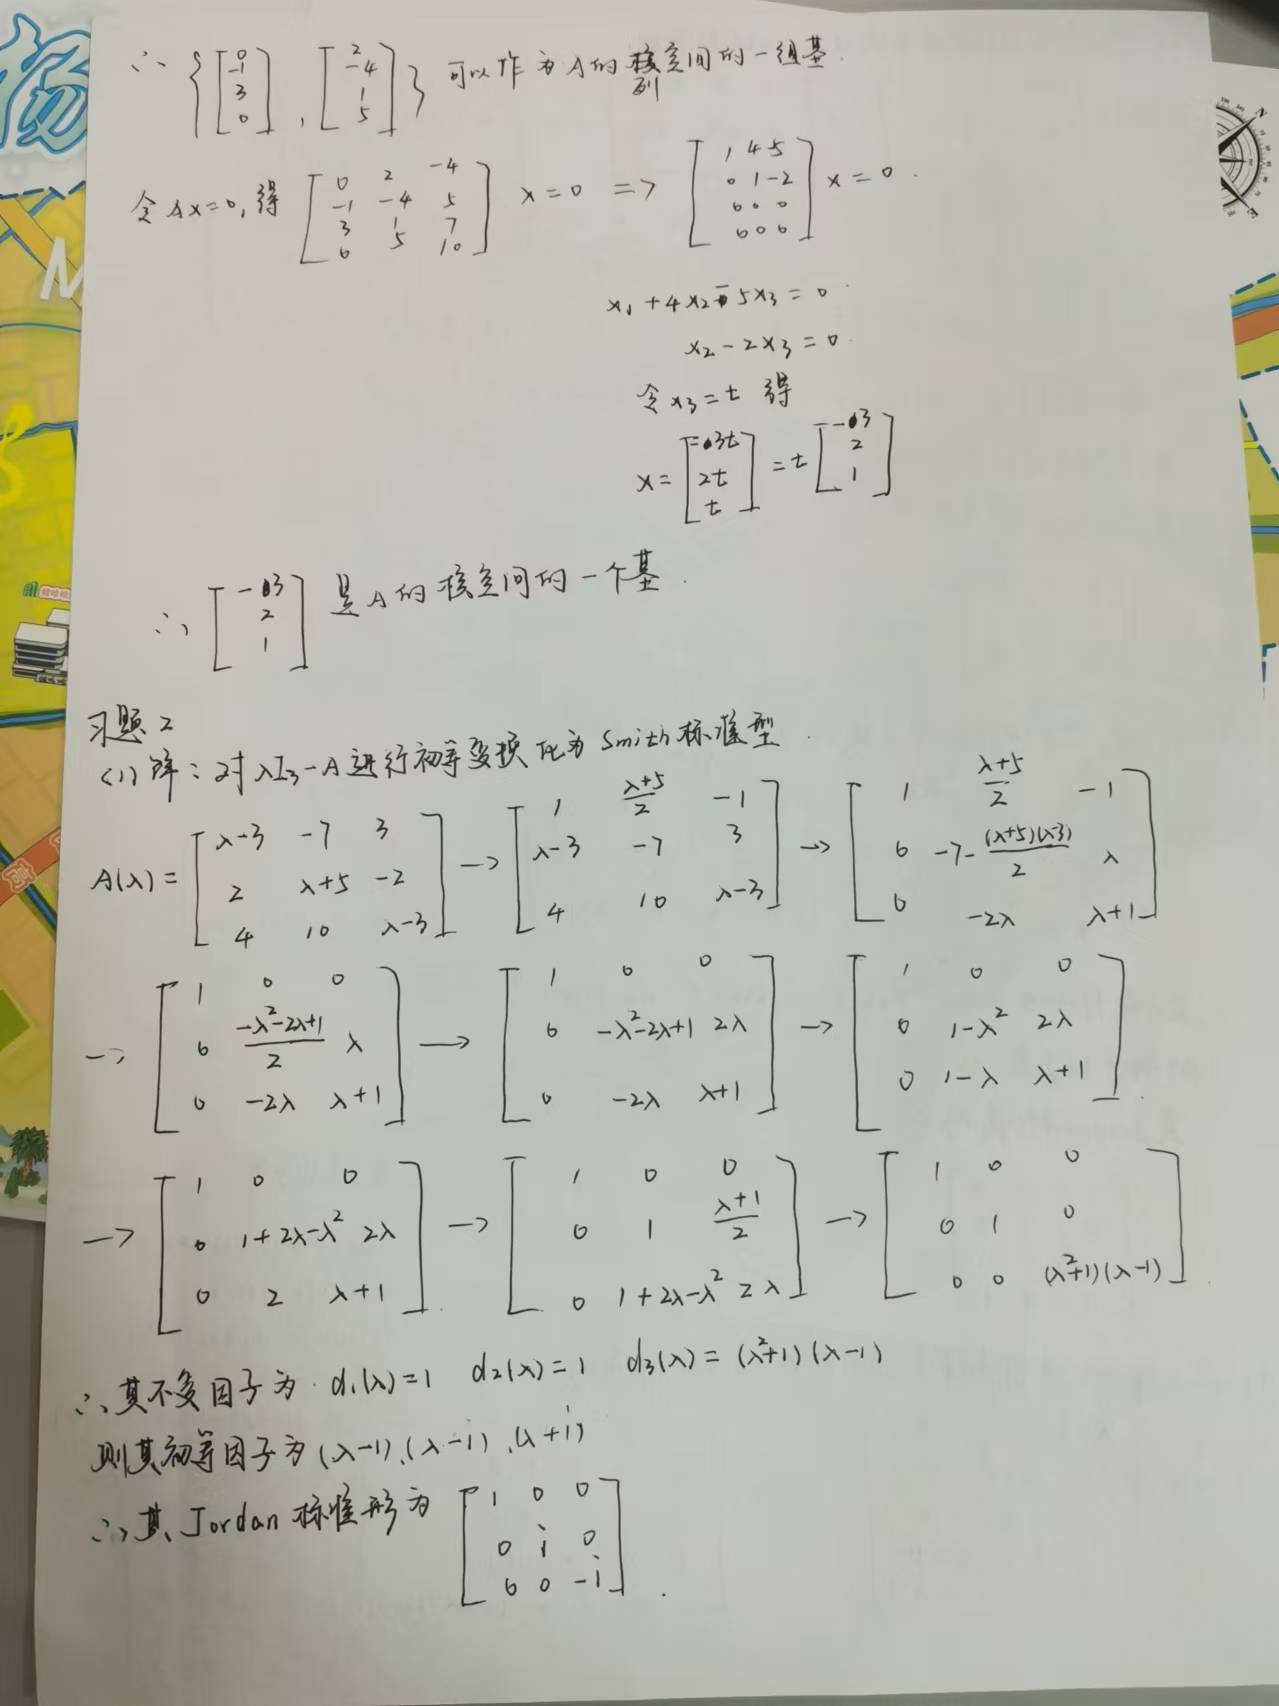 杨
∴ { [0 -1 3 0], [2 -4 1 5] } 可以作为A的列空间的一组基.
令Ax=0,得 [0 2 -4; -1 -4 5; 3 1 7; 0 5 10] x=0 => [1 4 5; 0 1 -2; 0 0 0; 0 0 0] x=0.
x₁+4x₂-5x₃=0
x₂-2x₃=0
令x₃=t 得
x= [-3t; 2t; t] =t [-3; 2; 1]
∴ [-3; 2; 1] 是A的核空间的一个基.
习题2
(1)解:对λI₃-A进行初等变换化为Smith标准型.
A(λ)= [λ-3 -7 3; 2 λ+5 -2; 4 10 λ-3] → [1 (λ+5)/2 -1; λ-3 -7 3; 4 10 λ-3] → [1 (λ+5)/2 -1; 0 -7-(λ+5)(λ-3)/2 λ; 0 -2λ λ+1]
→ [1 0 0; 0 (-λ²-2λ+1)/2 λ; 0 -2λ λ+1] → [1 0 0; 0 -λ²-2λ+1 2λ; 0 -2λ λ+1] → [1 0 0; 0 1-λ² 2λ; 0 1-λ λ+1]
→ [1 0 0; 0 1+2λ-λ² 2λ; 0 2 λ+1] → [1 0 0; 0 1 (λ+1)/2; 0 1+2λ-λ² 2λ] → [1 0 0; 0 1 0; 0 0 (λ²+1)(λ-1)].
∴其不变因子为 d₁(λ)=1 d₂(λ)=1 d₃(λ)=(λ²+1)(λ-1)
则其初等因子为(λ-1)、(λ-i)、(λ+i)
∴其Jordan标准形为 [1 0 0; 0 i 0; 0 0 -i].